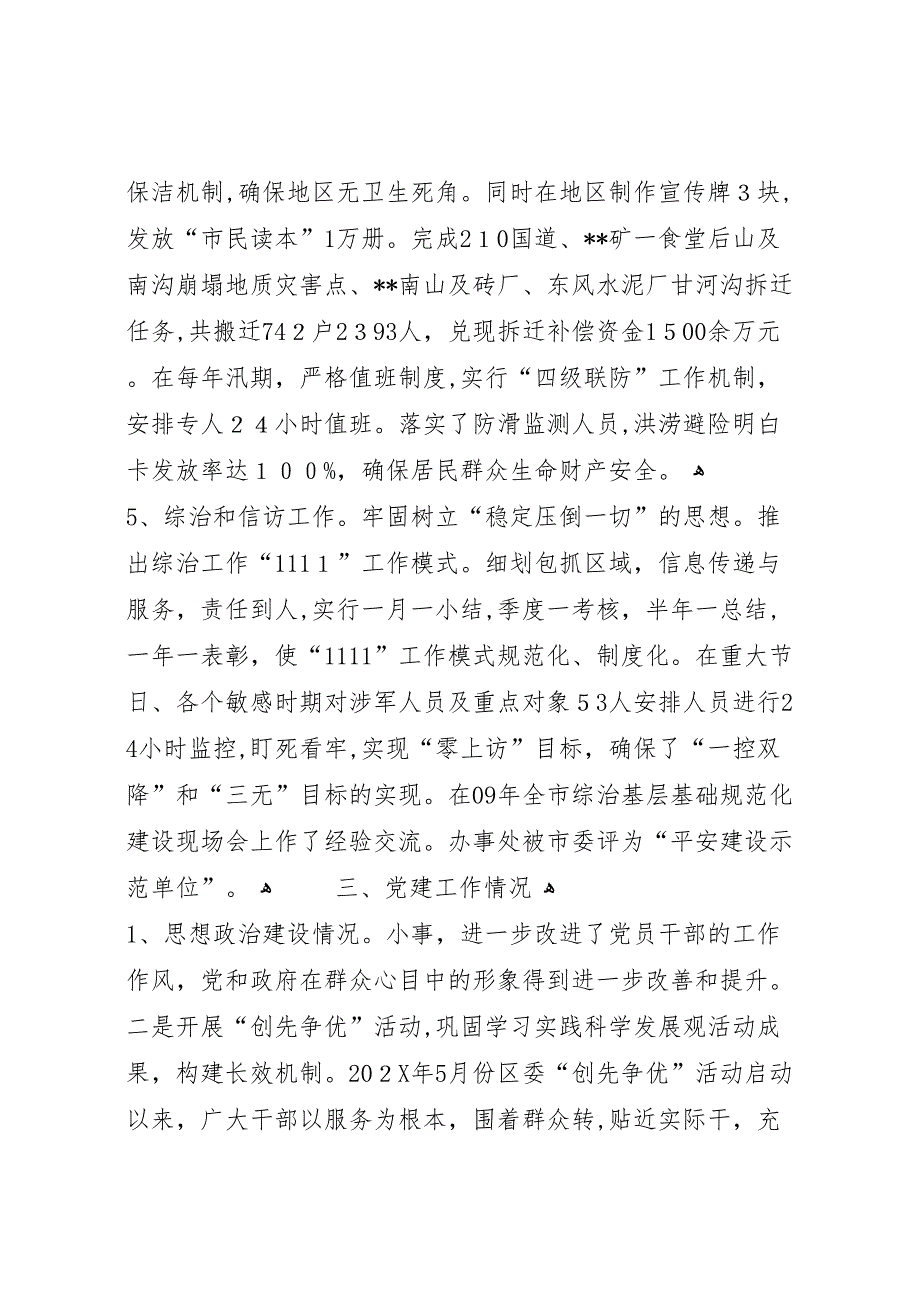 保洁机制,确保地区无卫生死角。同时在地区制作宣传牌３块,
发放“市民读本”1万册。完成2１0国道、**矿一食堂后山及
南沟崩塌地质灾害点、**南山及砖厂、东风水泥厂甘河沟拆迁
任务,共搬迁74２户2３93人，兑现拆迁补偿资金1５00余万元
。在每年汛期，严格值班制度,实行“四级联防”工作机制，
安排专人２４小时值班。落实了防滑监测人员,洪涝避险明白
卡发放率达１００%，确保居民群众生命财产安全。 ﻫ
5、综治和信访工作。牢固树立“稳定压倒一切”的思想。推
出综治工作“111１”工作模式。细划包抓区域，信息传递与
服务，责任到人,实行一月一小结,季度一考核，半年一总结，
一年一表彰，使“1111”工作模式规范化、制度化。在重大节
日、各个敏感时期对涉军人员及重点对象５3人安排人员进行2
4小时监控,盯死看牢,实现“零上访”目标，确保了“一控双
降”和“三无”目标的实现。在09年全市综治基层基础规范化
建设现场会上作了经验交流。办事处被市委评为“平安建设示
范单位”。 ﻫ 三、党建工作情况 ﻫ
1、思想政治建设情况。小事，进一步改进了党员干部的工作
作风，党和政府在群众心目中的形象得到进一步改善和提升。
二是开展“创先争优”活动,巩固学习实践科学发展观活动成
果，构建长效机制。20２X年5月份区委“创先争优”活动启动
以来，广大干部以服务为根本，围着群众转,贴近实际干，充